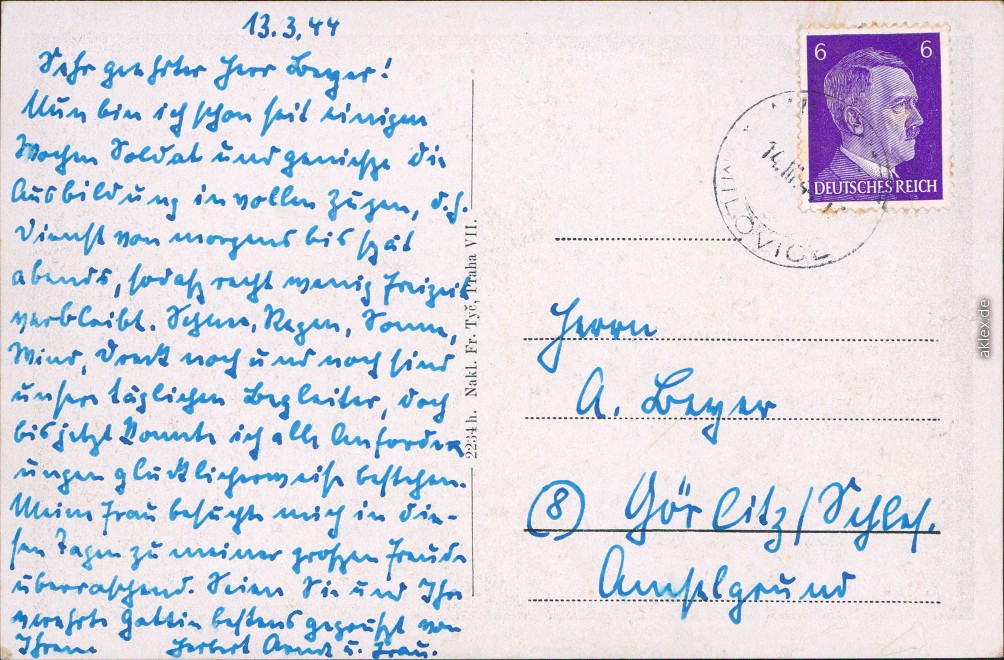 13.3.44
Sehr geehrter Herr Beyer!
Nun bin ich schon seit einigen
Wochen Soldat und genieße die
Ausbildung in vollen Zügen, d.h.
Dienst von morgens bis spät
abends, sodaß recht wenig Freizeit
verbleibt. Schnee, Regen, Sonne,
Wind, Dreck noch und noch sind
unsere täglichen Begleiter, doch
bis jetzt konnte ich alle Anforder-
ungen glücklicherweise bestehen.
Meine Frau besuchte mich in die-
sen Tagen zu meiner großen Freude
überraschend. Seien Sie und Ihre
verehrte Gattin bestens gegrüßt von
Ihrem Herbert Arndt u. Frau.
2234 h. Nakl. Fr. Tyč, Praha VII.
6 6
DEUTSCHES REICH
14.III.4
LOVICE
Herrn
A. Beyer
(8) Görlitz/Schles.
Amselgrund
aklex.de